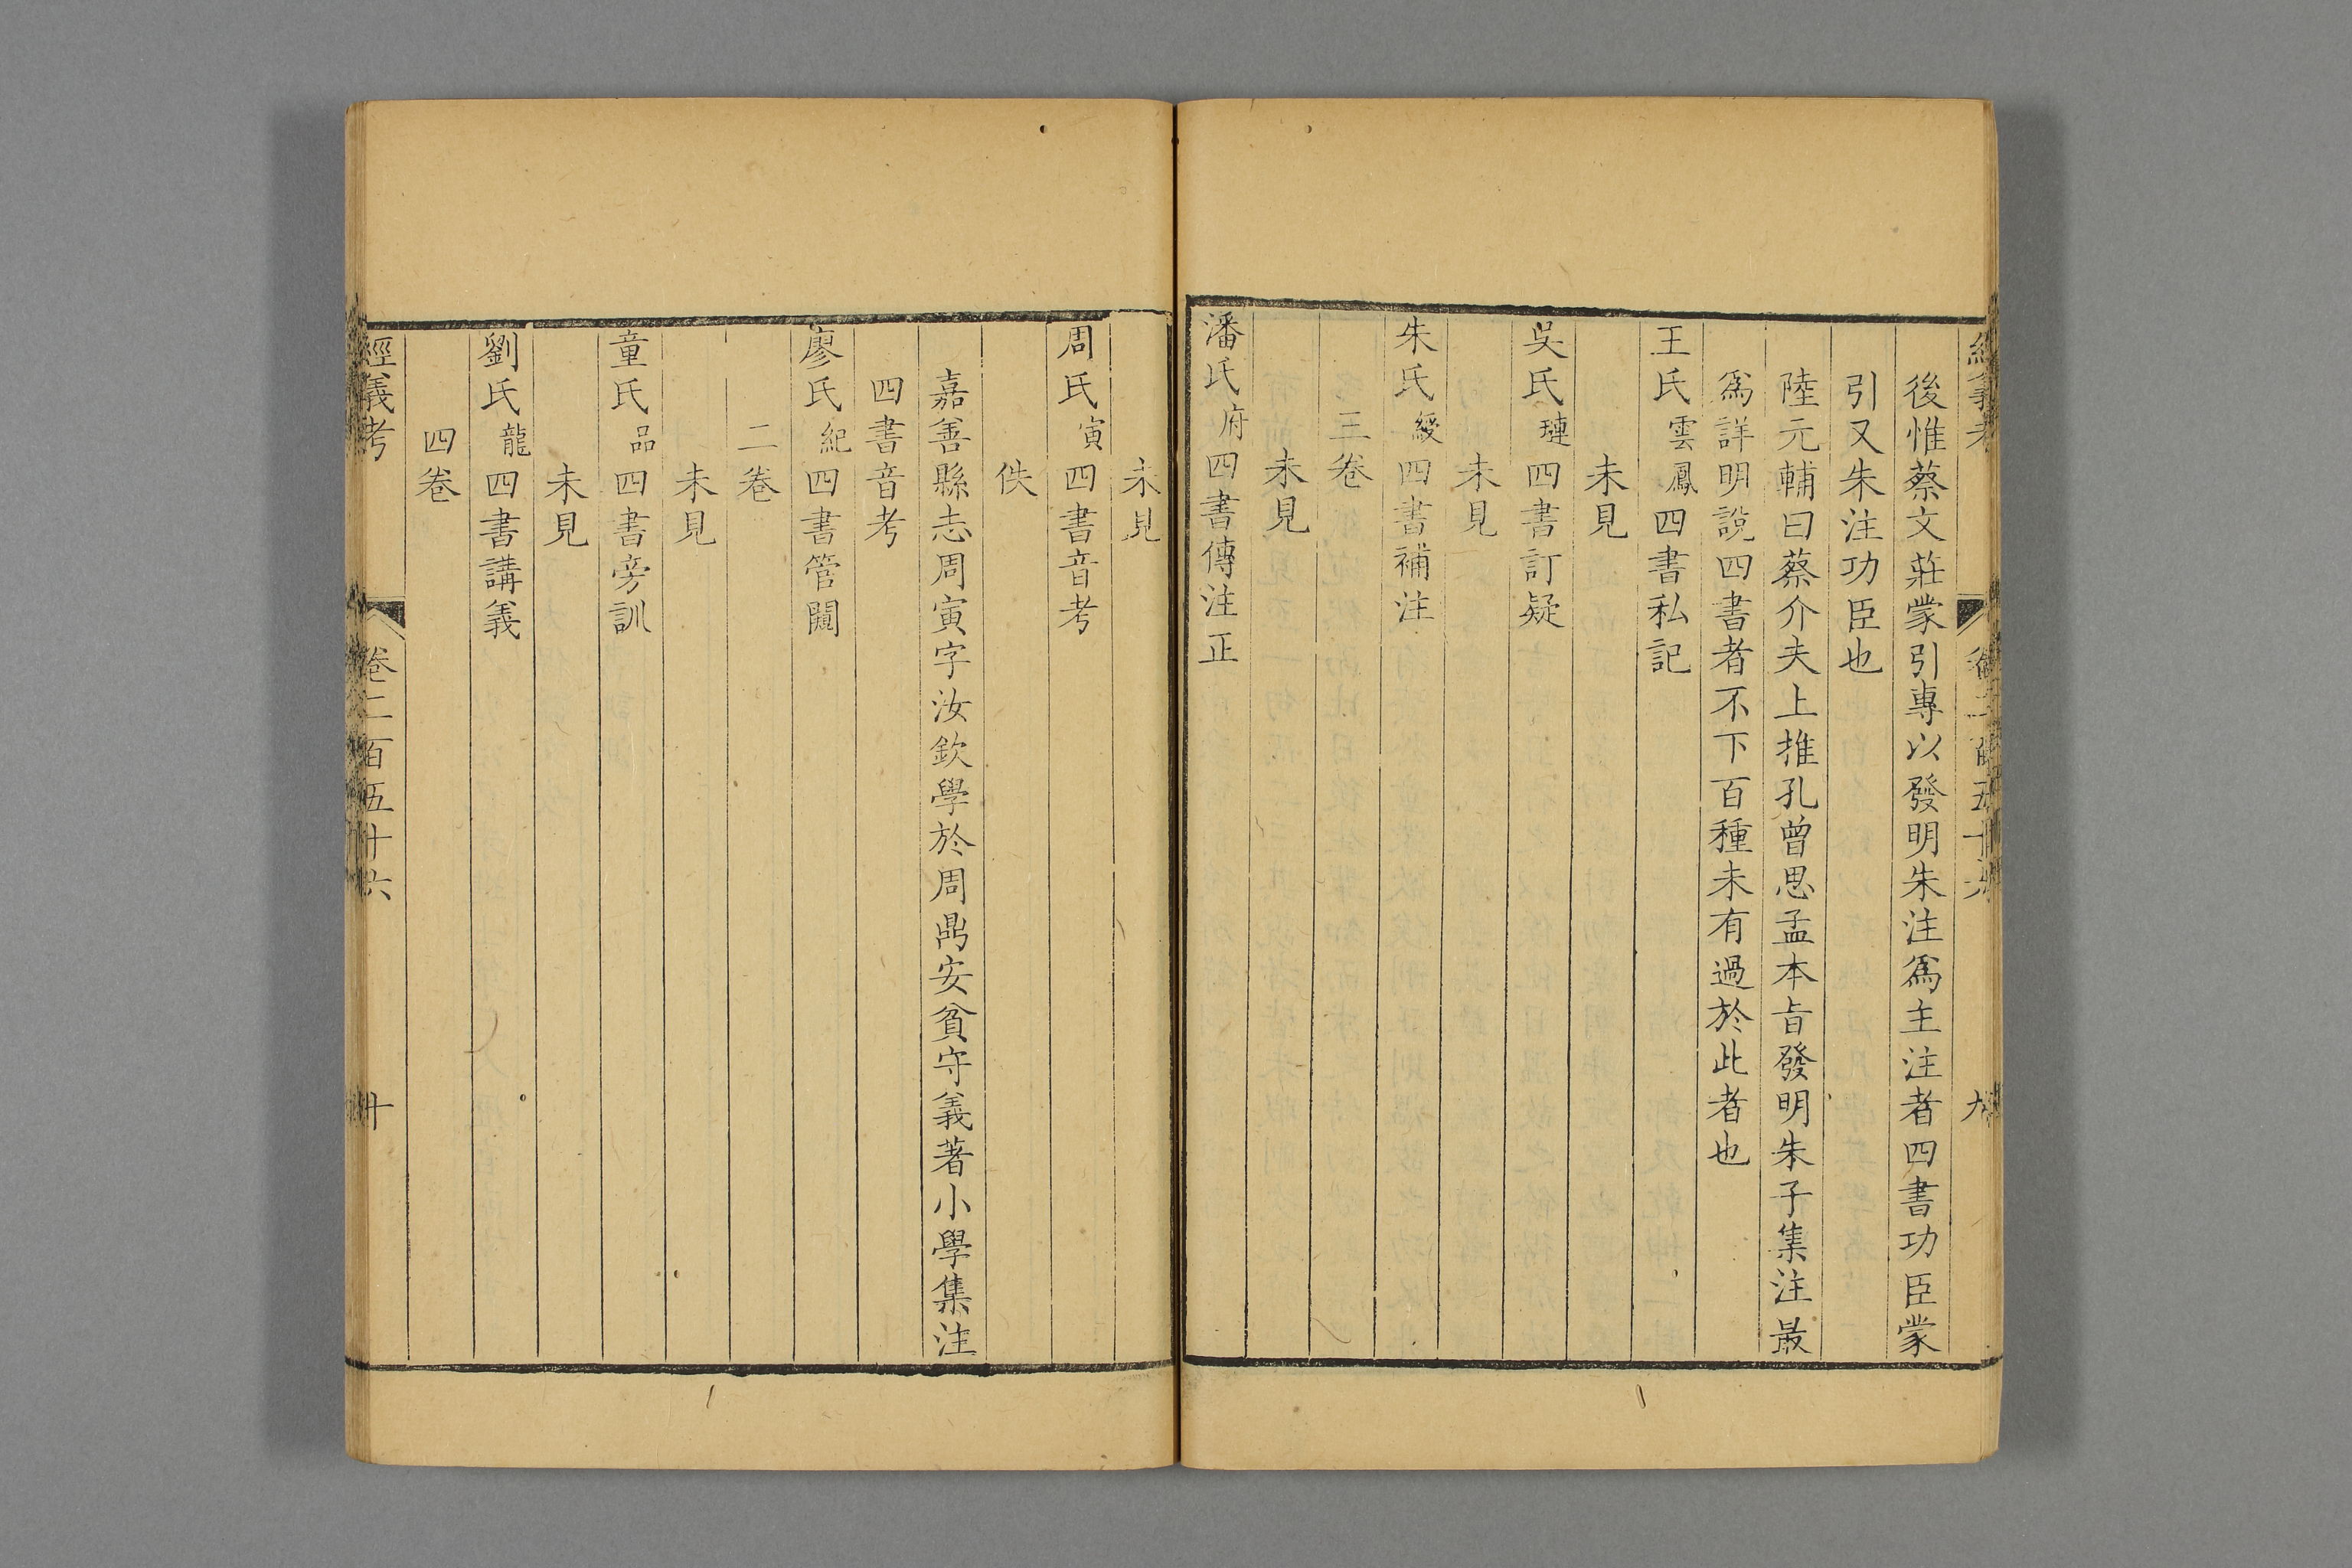 經義考 卷二百五十六 九
後惟蔡文莊蒙引專以發明朱注爲主注者四書功臣蒙
引又朱注功臣也
陸元輔曰蔡介夫上推孔曾思孟本旨發明朱子集注最
爲詳明說四書者不下百種未有過於此者也
王氏雲鳳四書私記
未見
吳氏璉四書訂疑
未見
朱氏綬四書補注
三卷
未見
潘氏府四書傳注正
未見
周氏寅四書音考
佚
嘉善縣志周寅字汝欽學於周鼎安貧守義著小學集注
四書音考
廖氏紀四書管闚
二卷
未見
童氏品四書旁訓
未見
劉氏龍四書講義
四卷
經義考 卷二百五十六 十